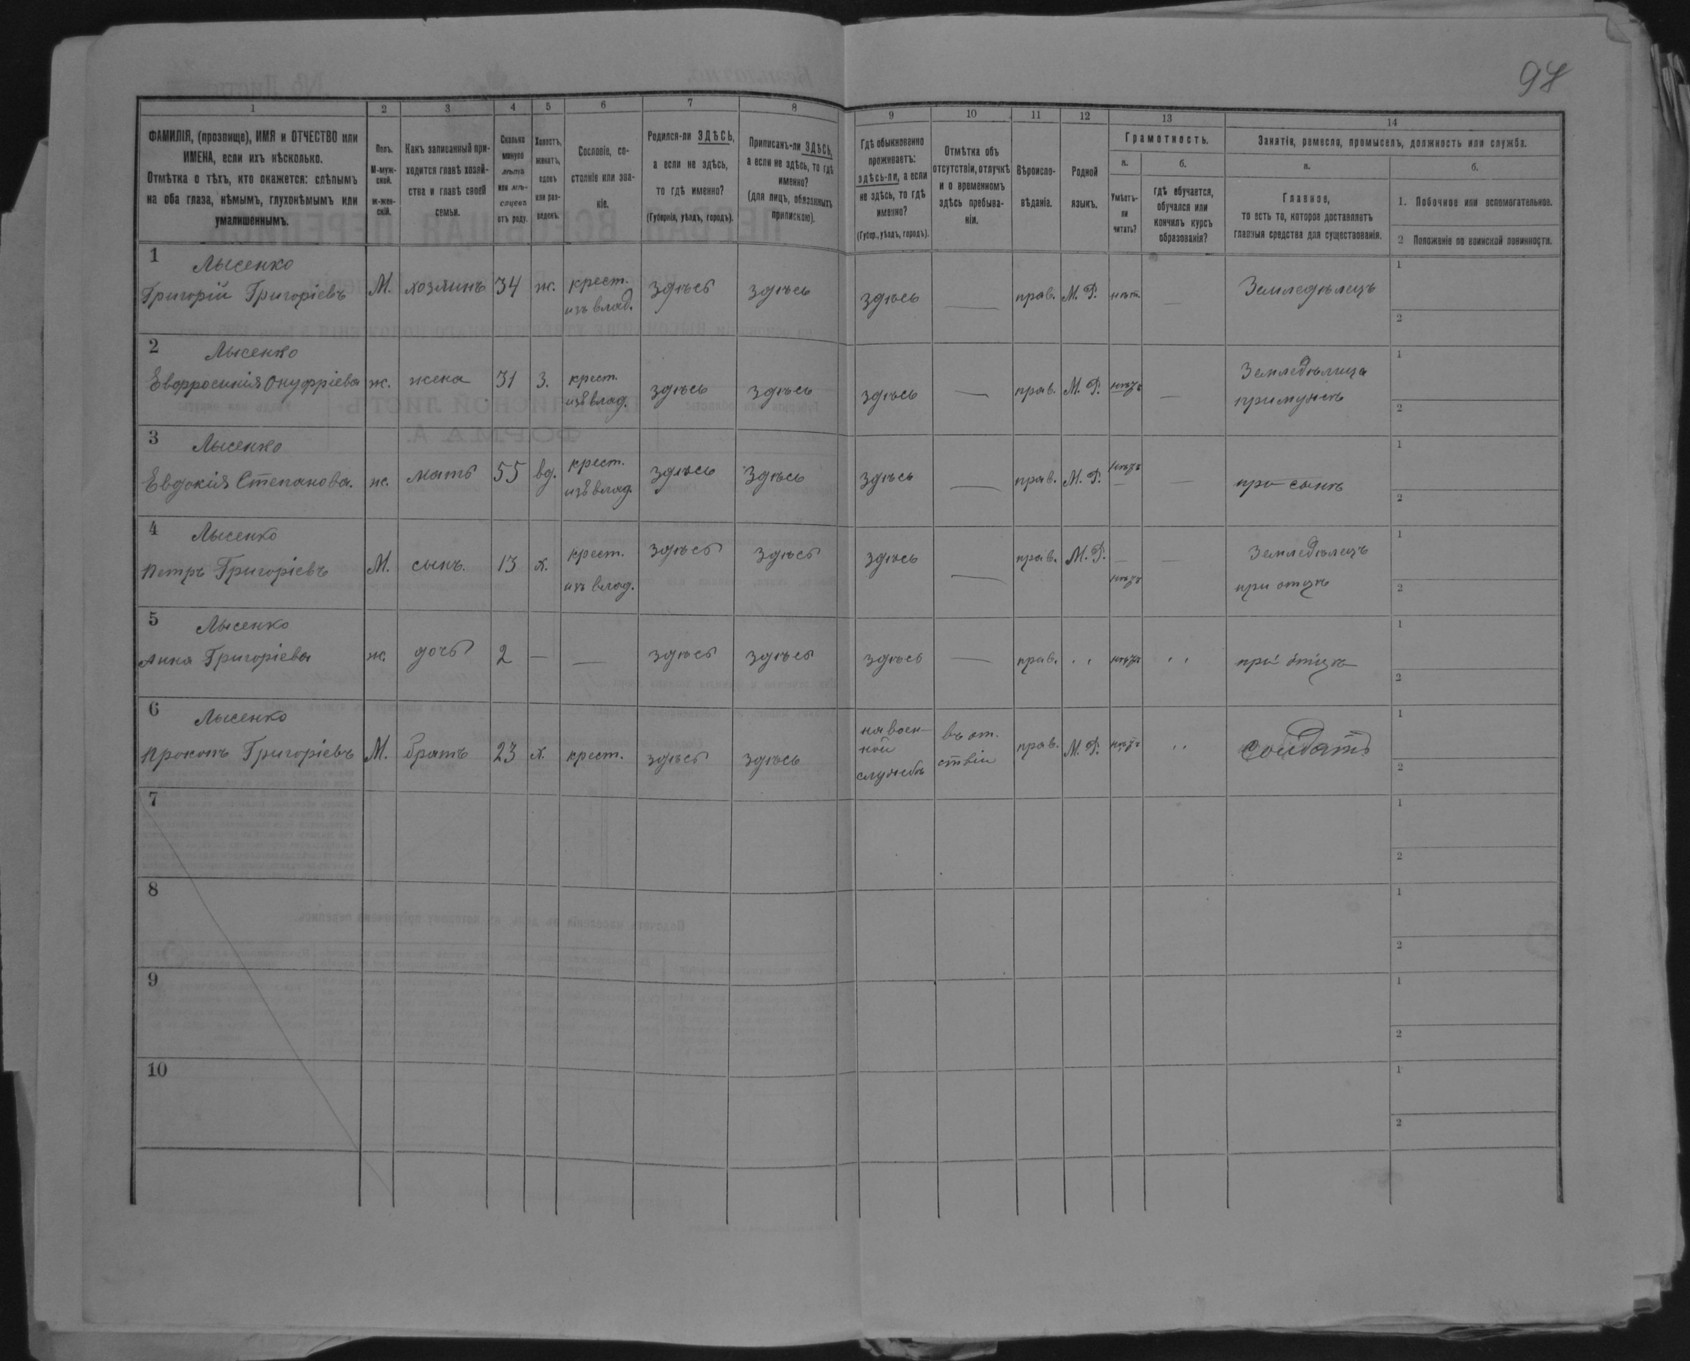 98
1
2
3
4
5
6
7
8
9
10
11
12
13
14
ФАМИЛІЯ, (прозвище), ИМЯ и ОТЧЕСТВО или
ИМЕНА, если ихъ нѣсколько.
Отмѣтка о тѣхъ, кто окажется: слѣпымъ
на оба глаза, нѣмымъ, глухонѣмымъ или
умалишеннымъ.
Полъ.
М-муж-
ской.
ж-жен-
скій.
Какъ записанный при-
ходится главѣ хозяй-
ства и главѣ своей
семьи.
Сколько
минуло
лѣтъ
или мѣ-
сяцевъ
отъ роду.
Холостъ,
женатъ,
вдовъ
или раз-
веденъ.
Сословіе, со-
стояніе или зва-
ніе.
Родился-ли ЗДѢСЬ,
а если не здѣсь,
то гдѣ именно?
(Губернія, уѣздъ, городъ).
Приписанъ-ли ЗДѢСЬ,
а если не здѣсь, то гдѣ
именно?
(для лицъ, обязанныхъ
припискою).
Гдѣ обыкновенно
проживаетъ:
здѣсь-ли, а если
не здѣсь, то гдѣ
именно?
(Губер., уѣздъ, городъ).
Отмѣтка объ
отсутствіи, отлучкѣ
и о временномъ
здѣсь пребыва-
ніи.
Вѣроиспо-
вѣданіе.
Родной
языкъ.
Грамотность.
а.
Умѣетъ-
ли
читать?
б.
гдѣ обучается,
обучался или
кончилъ курсъ
образованія?
Занятіе, ремесло, промыселъ, должность или служба.
а.
Главное,
то есть то, которое доставляетъ
главныя средства для существованія.
б.
1. Побочное или вспомогательное.
2 Положеніе по воинской повинности.
1 Лысенко
Григорій Григоріевъ М. хозяинъ 34 ж. крест. изъ влад. здѣсь здѣсь здѣсь — прав. М. Р. нѣт. — Земледѣлецъ 1 2
2 Лысенко
Евфросинія Онуфріева ж. жена 31 з. крест. изъ влад. здѣсь здѣсь здѣсь — прав. М. Р. нѣтъ — Земледѣлица при мужѣ 1 2
3 Лысенко
Евдокія Степанова. ж. мать 55 вд. крест. изъ влад. здѣсь здѣсь здѣсь — прав. М. Р. нѣтъ — при сынѣ 1 2
4 Лысенко
Петръ Григоріевъ М. сынъ. 13 х. крест. изъ влад. здѣсь здѣсь здѣсь — прав. М. Р. нѣтъ — Земледѣлецъ при отцѣ 1 2
5 Лысенко
Анна Григоріева ж. дочь 2 — — здѣсь здѣсь здѣсь — прав. " нѣтъ " при отцѣ 1 2
6 Лысенко
Прокопъ Григоріевъ М. братъ 23 х. крест. здѣсь здѣсь на воен-ной службѣ въ от. ствіи прав. М. Р. нѣтъ " солдатъ 1 2
7 1 2
8 1 2
9 1 2
10 1 2